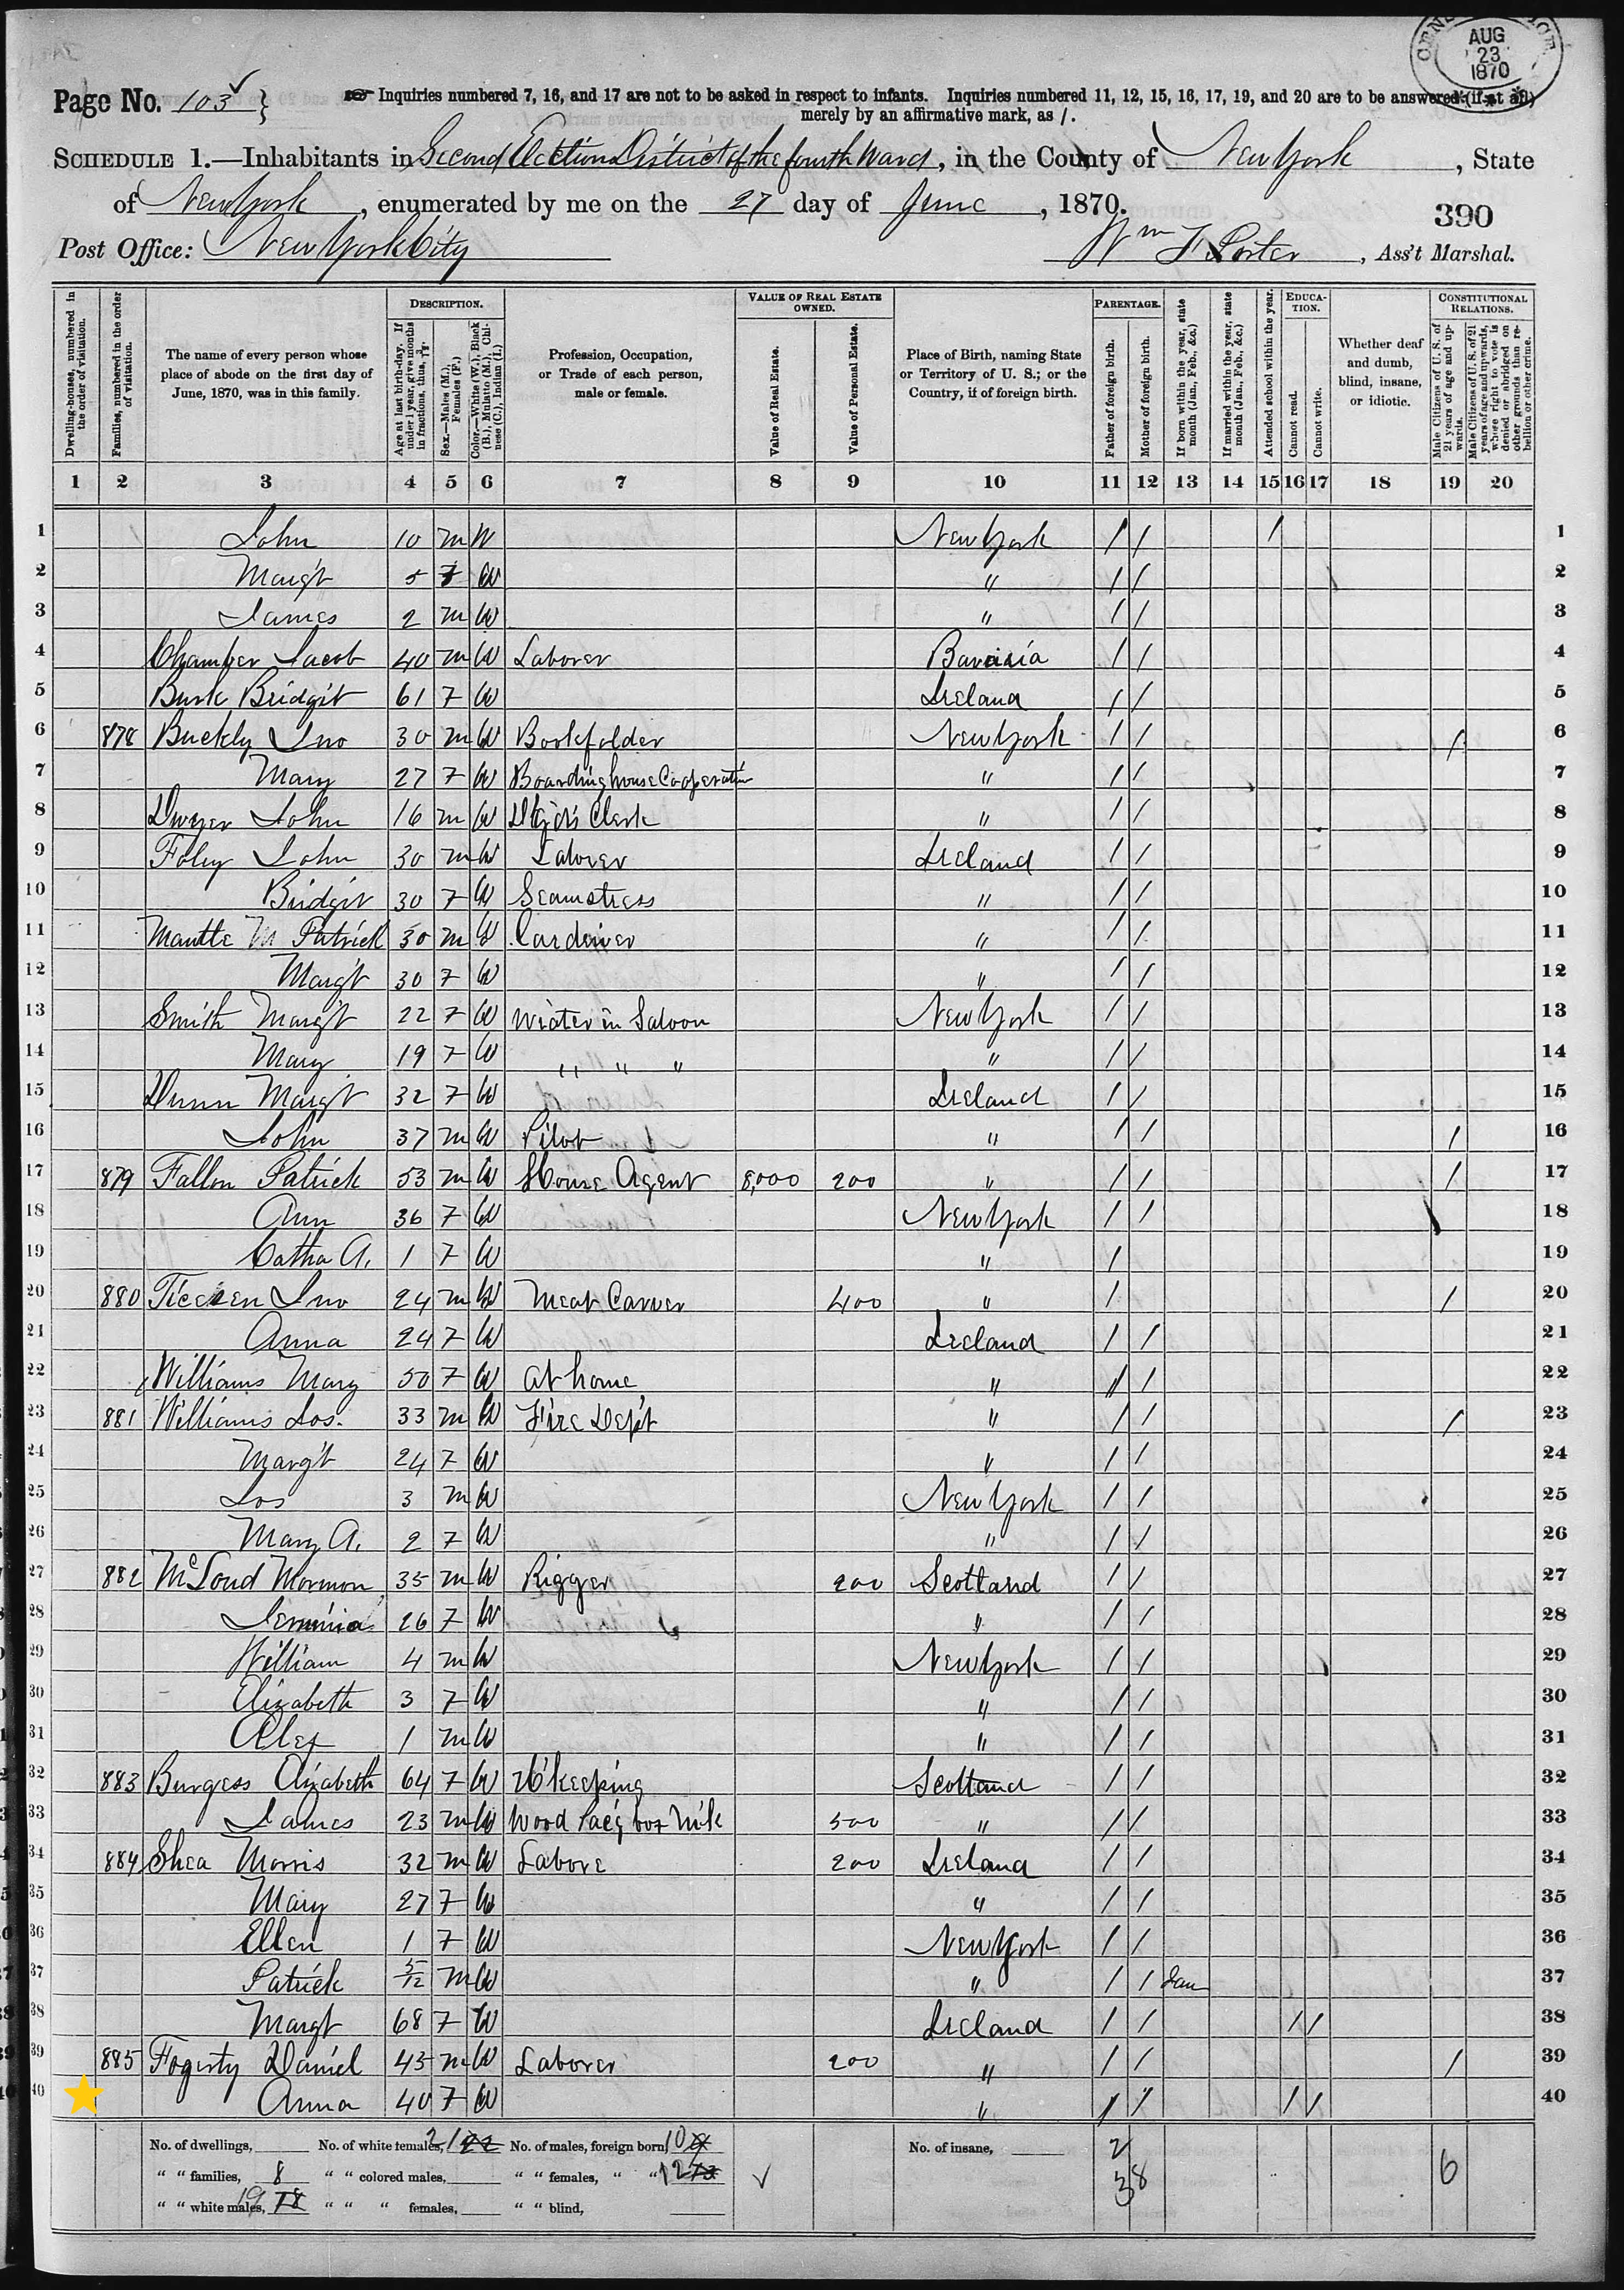 CENSUS OFFICE
AUG
23
1870
Page No. 103
Inquiries numbered 7, 16, and 17 are not to be asked in respect to infants. Inquiries numbered 11, 12, 15, 16, 17, 19, and 20 are to be answered (if at all)
merely by an affirmative mark, as /.
SCHEDULE 1.—Inhabitants in Second Election District of the fourth Ward, in the County of New York, State
of New York, enumerated by me on the 27 day of June, 1870.
390
Post Office: New York City
Wm F Porter, Ass't Marshal.
Dwelling-houses, numbered in the order of visitation.
Families, numbered in the order of visitation.
The name of every person whose place of abode on the first day of June, 1870, was in this family.
DESCRIPTION.
Age at last birth-day. If under 1 year, give months in fractions, thus, 3/12.
Sex.—Males (M.), Females (F.)
Color.—White (W.), Black (B.), Mulatto (M.), Chinese (C.), Indian (I.)
Profession, Occupation, or Trade of each person, male or female.
VALUE OF REAL ESTATE OWNED.
Value of Real Estate.
Value of Personal Estate.
Place of Birth, naming State or Territory of U. S.; or the Country, if of foreign birth.
PARENTAGE.
Father of foreign birth.
Mother of foreign birth.
If born within the year, state month (Jan., Feb., &c.)
If married within the year, state month (Jan., Feb., &c.)
EDUCATION.
Attended school within the year.
Cannot read.
Cannot write.
Whether deaf and dumb, blind, insane, or idiotic.
CONSTITUTIONAL RELATIONS.
Male Citizens of U. S. of 21 years of age and upwards.
Male Citizens of U. S. of 21 years of age and upwards, whose right to vote is denied or abridged on other grounds than rebellion or other crime.
1 2 3 4 5 6 7 8 9 10 11 12 13 14 15 16 17 18 19 20
1 John 10 m W New York / / / 1
2 Marg't 5 F W " / / 2
3 James 2 m W " / / 3
4 Chamber Jacob 40 m W Laborer Bavaria / / 4
5 Burk Bridgit 61 F W Ireland / / 5
6 878 Buckly Jno 30 m W Bookfolder New York / / / 6
7 Mary 27 F W Boardinghouse " / / 7
8 Dwyer John 16 m W Clerk " / / 8
9 Foley John 30 m W Laborer Ireland / / 9
10 Bridgit 30 F W Seamstress " / / 10
11 Patrick 30 m W Car driver " / / 11
12 Marg't 30 F W " / / 12
13 Smith Marg't 22 F W Waiter in Saloon New York / / 13
14 Mary 19 F W " " " " / / 14
15 Dunn Marg't 32 F W Ireland / / 15
16 John 37 m W Pilot " / / / 16
17 879 Fallon Patrick 53 m W House Agent 8,000 200 " / / / 17
18 Ann 36 F W New York / / 18
19 Catha A. 1 F W " / 19
20 880 Jno 24 m W Meat Carver 400 " / / 20
21 Anna 24 F W Ireland / / 21
22 Williams Mary 50 F W at home " / / 22
23 881 Williams Jos. 33 m W Fire Dep't " / / / 23
24 Marg't 24 F W " / / 24
25 Jos 3 m W New York / / 25
26 Mary A. 2 F W " / / 26
27 882 McLoud Mormon 35 m W Rigger 200 Scotland / / 27
28 Jemmia 26 F W " / / 28
29 William 4 m W New York / / 29
30 Elizabeth 3 F W " / / 30
31 Alex 1 m W " / / 31
32 883 Burgess Elizabeth 64 F W H'keeping Scotland / / 32
33 James 23 m W Wood box 500 " / / 33
34 884 Shea Morris 32 m W Labore 200 Ireland / / 34
35 Mary 27 F W " / / 35
36 Ellen 1 F W New York / / 36
37 Patrick 5/12 m W " / / Jan 37
38 Margt 68 F W Ireland / / / / 38
39 885 Fogerty Daniel 45 m W Laborer 200 " / / / 39
40 Anna 40 F W " / / / / 40
No. of dwellings, No. of white females, 21 22 No. of males, foreign born, 10 No. of insane, 2
" " families, 8 " " colored males, " " females, " " 12 13 38 6
" " white males, 19 18 " " " females, " " blind,